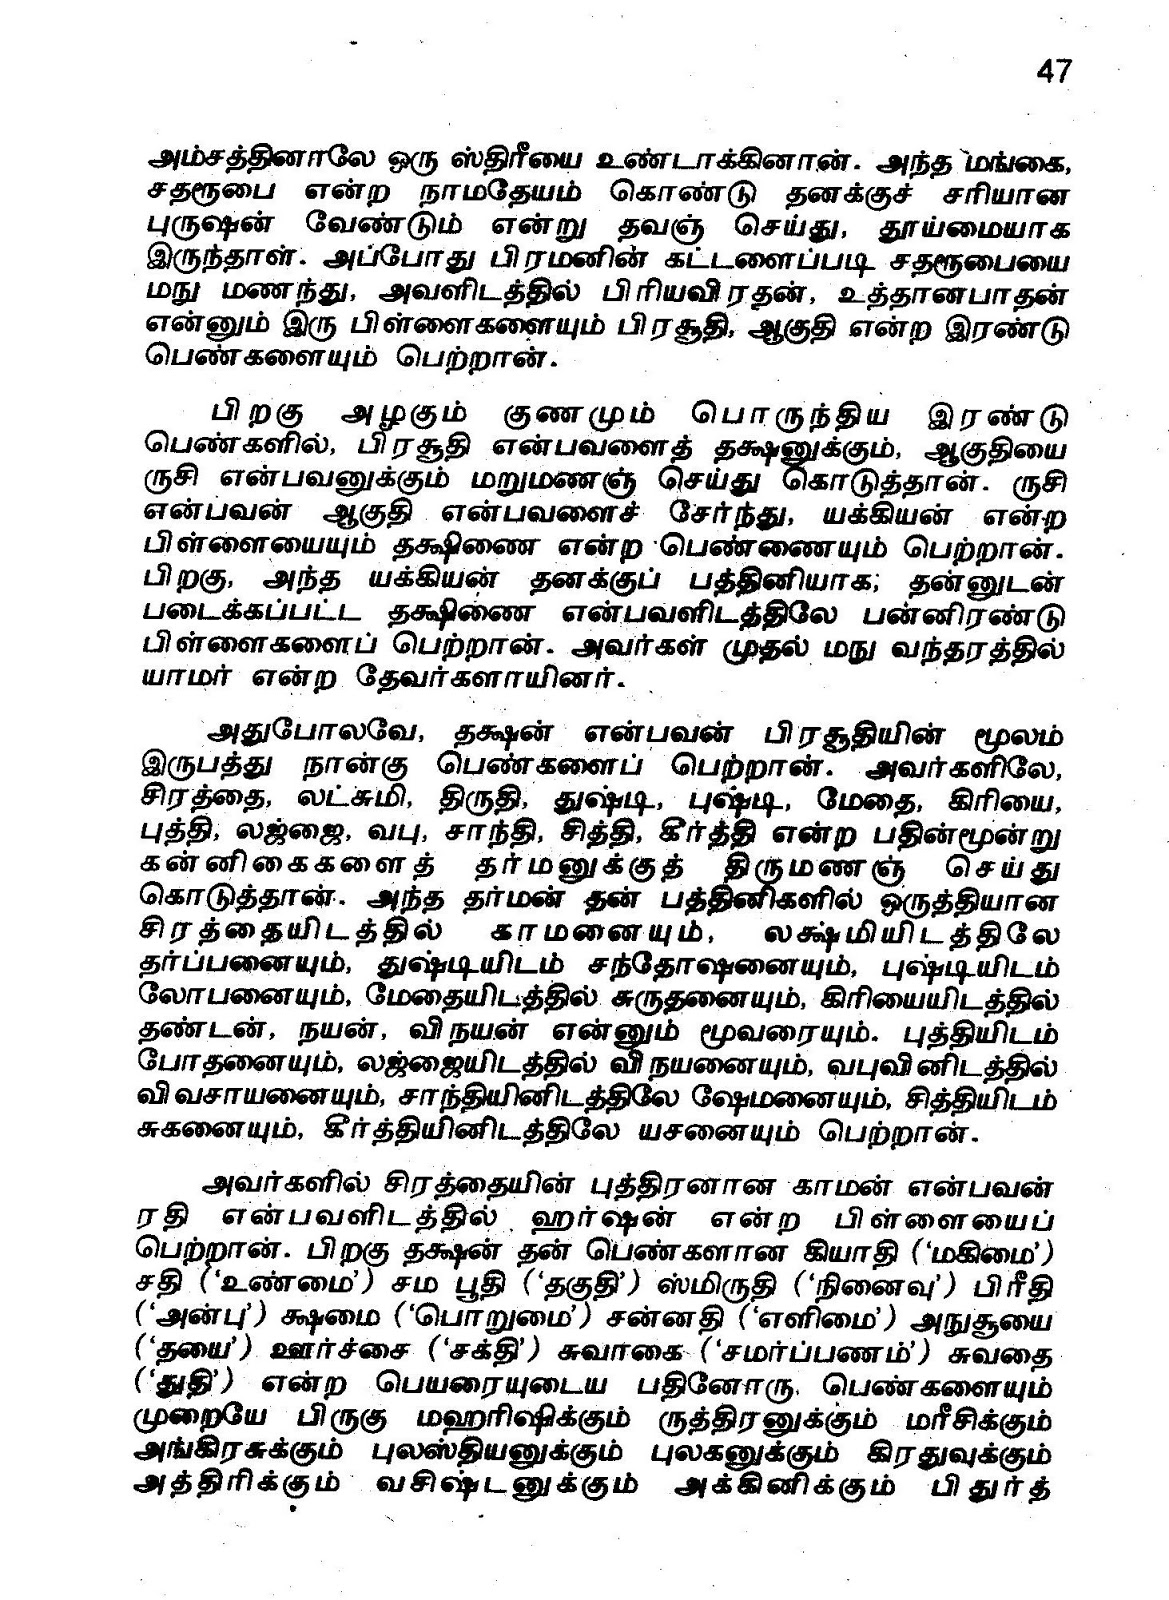 47
அம்சத்தினாலே ஒரு ஸ்திரீயை உண்டாக்கினான். அந்த மங்கை,
சதரூபை என்ற நாமதேயம் கொண்டு தனக்குச் சரியான
புருஷன் வேண்டும் என்று தவஞ் செய்து, தூய்மையாக
இருந்தாள். அப்போது பிரமனின் கட்டளைப்படி சதரூபையை
மநு மணந்து, அவளிடத்தில் பிரியவிரதன், உத்தானபாதன்
என்னும் இரு பிள்ளைகளையும் பிரசூதி, ஆகுதி என்ற இரண்டு
பெண்களையும் பெற்றான்.
பிறகு அழகும் குணமும் பொருந்திய இரண்டு
பெண்களில், பிரசூதி என்பவளைத் தக்ஷனுக்கும், ஆகுதியை
ருசி என்பவனுக்கும் மறுமணஞ் செய்து கொடுத்தான். ருசி
என்பவன் ஆகுதி என்பவளைச் சேர்ந்து, யக்கியன் என்ற
பிள்ளையையும் தக்ஷிணை என்ற பெண்ணையும் பெற்றான்.
பிறகு, அந்த யக்கியன் தனக்குப் பத்தினியாக; தன்னுடன்
படைக்கப்பட்ட தக்ஷிணை என்பவளிடத்திலே பன்னிரண்டு
பிள்ளைகளைப் பெற்றான். அவர்கள் முதல் மநு வந்தரத்தில்
யாமர் என்ற தேவர்களாயினர்.
அதுபோலவே, தக்ஷன் என்பவன் பிரசூதியின் மூலம்
இருபத்து நான்கு பெண்களைப் பெற்றான். அவர்களிலே,
சிரத்தை, லட்சுமி, திருதி, துஷ்டி, புஷ்டி, மேதை, கிரியை,
புத்தி, லஜ்ஜை, வபு, சாந்தி, சித்தி, கீர்த்தி என்ற பதின்மூன்று
கன்னிகைகளைத் தர்மனுக்குத் திருமணஞ் செய்து
கொடுத்தான். அந்த தர்மன் தன் பத்தினிகளில் ஒருத்தியான
சிரத்தையிடத்தில் காமனையும், லக்ஷ்மியிடத்திலே
தர்ப்பனையும், துஷ்டியிடம் சந்தோஷனையும், புஷ்டியிடம்
லோபனையும், மேதையிடத்தில் சுருதனையும், கிரியையிடத்தில்
தண்டன், நயன், விநயன் என்னும் மூவரையும். புத்தியிடம்
போதனையும், லஜ்ஜையிடத்தில் விநயனையும், வபுவினிடத்தில்
விவசாயனையும், சாந்தியினிடத்திலே ஷேமனையும், சித்தியிடம்
சுகனையும், கீர்த்தியினிடத்திலே யசனையும் பெற்றான்.
அவர்களில் சிரத்தையின் புத்திரனான காமன் என்பவன்
ரதி என்பவளிடத்தில் ஹர்ஷன் என்ற பிள்ளையைப்
பெற்றான். பிறகு தக்ஷன் தன் பெண்களான கியாதி (‘மகிமை’)
சதி (‘உண்மை’) சம பூதி (‘தகுதி’) ஸ்மிருதி (‘நினைவு’) பிரீதி
(‘அன்பு’) க்ஷமை (‘பொறுமை’) சன்னதி (‘எளிமை’) அநுசூயை
(‘தயை’) ஊர்ச்சை (‘சக்தி’) சுவாகை (‘சமர்ப்பணம்’) சுவதை
(‘துதி’) என்ற பெயரையுடைய பதினோரு பெண்களையும்
முறையே பிருகு மஹரிஷிக்கும் ருத்திரனுக்கும் மரீசிக்கும்
அங்கிரசுக்கும் புலஸ்தியனுக்கும் புலகனுக்கும் கிரதுவுக்கும்
அத்திரிக்கும் வசிஷ்டனுக்கும் அக்கினிக்கும் பிதுர்த்